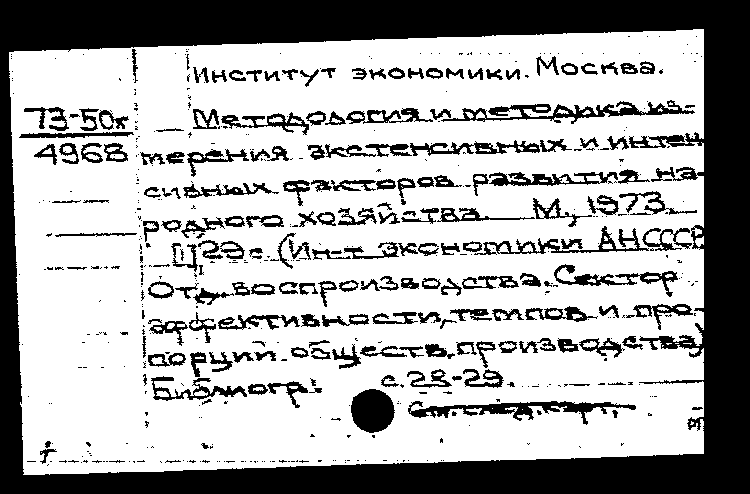 Институт экономики. Москва.
73-50к
4968
Методология и методика из-
мерения экстенсивных и интен
сивных факторов развития на-
родного хозяйства. М., 1973.
29с (Ин-т экономики АНСССР
Отд. воспроизводства. Сектор
эффективности, темпов и про-
порций обществ. производства)
Библиогр: с.28-29.
См. след. карт.